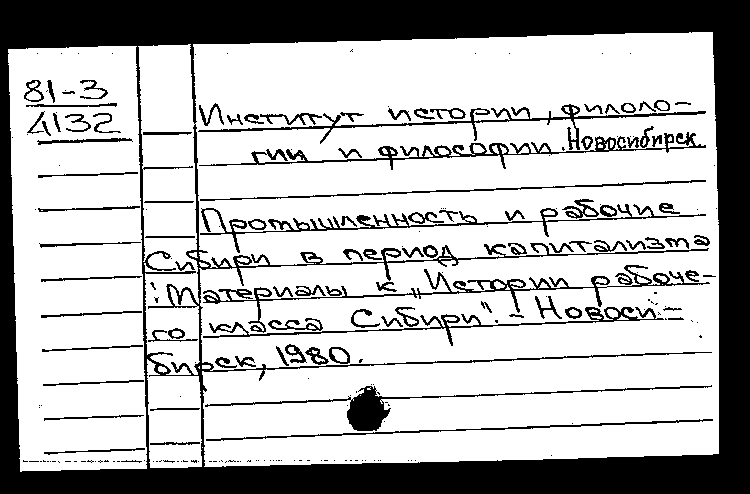 81-3
4132
Институт истории, филоло-
гии и философии. Новосибирск.
Промышленность и рабочие
Сибири в период капитализма
: Материалы к „Истории рабоче-
го класса Сибири". - Новоси-
бирск, 1980.